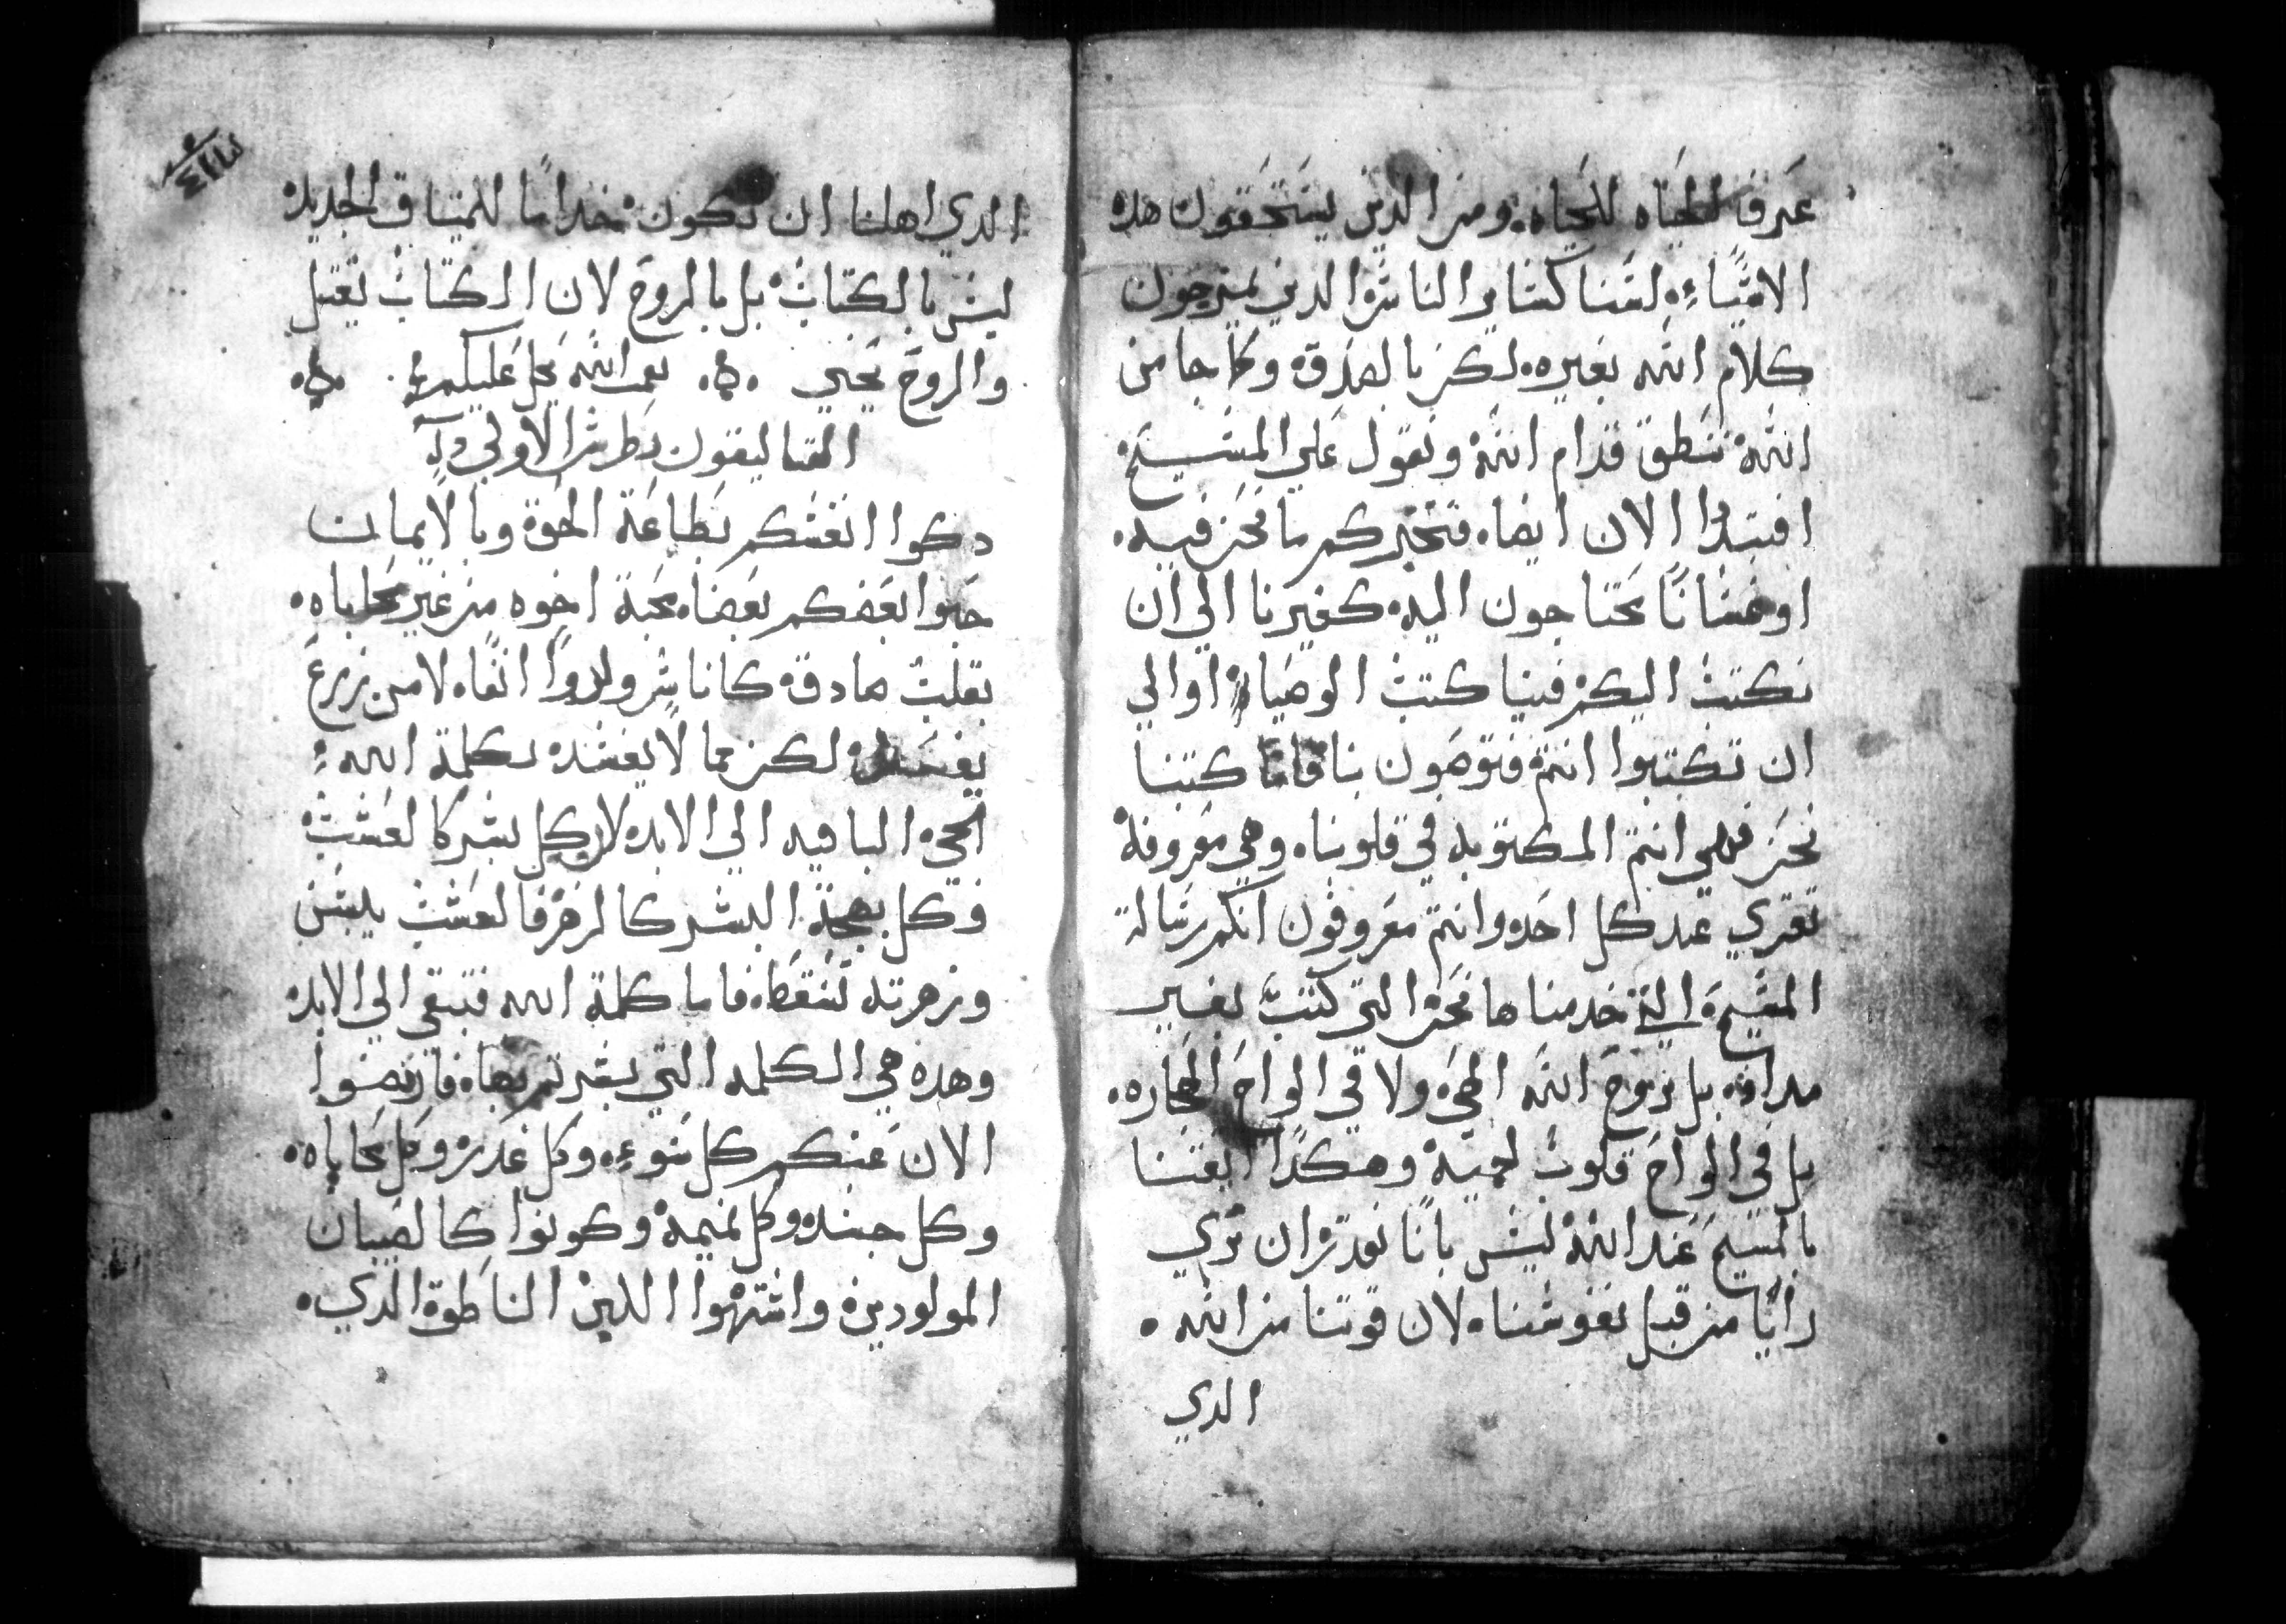 عرف الحياه للحياه ومن الدين يستحقون هده
الاشياء لسنا كساير الناس الدين يمزجون
كلام الله بغيره لكن بالصدق وكما من
الله ننطق قدام الله ونقول علي المسيح
افنبتدا الان ايضا فنخبركم ما نحن فيه
اوعسانا محتاجون اليه كغيرنا الي ان
نكتب اليكم فينا كتب الوصيا اوالي
ان تكتبوا انتم فتوصون بنا فاما كتبنا
نحن فهي انتم المكتوبه في قلوبنا وهي معروفة
تقري عند كل احد وانتم معروفون انكم رسالة
المسيح التي خدمناها نحن التي كتبت بغير
مداد بل بروح الله الحي ولا في الواح الحجاره
بل في الواح قلوب لحمية وهكدا ثقتنا
بالمسيح عند الله ليس بانا نقدر ان نري
رايا من قبل نفوسنا لان قوتنا من الله
الدي
الدي اهلنا ان نكون خداما للميتاق الجديد
ليس بالكتاب بل بالروح لان الكتاب تقتل
والروح يحيي نعمت الله تحل عليكم
القتاليقون بطرس الاولي
دكوا انفسكم بطاعة الحق وبالايمان
حبوا بعضكم بعضا محبة اخوه من غير محاباه
بقلب صادق كاناس ولدوا انفا لا من زرع
يفسد لكن مما لا يفسد بكلمة الله
الحي الباقيه الي الابد لان كل بشر كالعشب
وكل بهجة البشر كالزهر فالعشب ييبس
وزهرته تسقط فاما كلمة الله فتبقي الي الابد
وهده هي الكلمه التي بشرتم بها فارفضوا
الان عنكم كل سوء وكل غدر وكل محاباه
وكل حسد وكل نميمة وكونوا كالصبيان
المولودين واشتهوا اللبن الناطق الدي